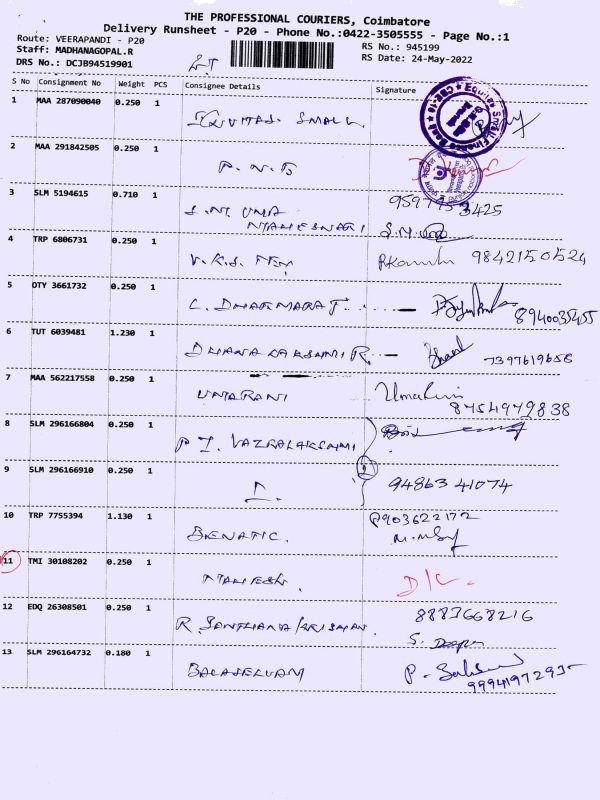 THE PROFESSIONAL COURIERS, Coimbatore
Delivery Runsheet - P20 - Phone No.:0422-3505555 - Page No.:1
Route: VEERAPANDI - P20
RS No.: 945199
Staff: MADHANAGOPAL.R
RS Date: 24-May-2022
DRS No.: DCJB94519901
S No Consignment No Weight PCS Consignee Details Signature
1 MAA 287090040 0.250 1 EQUITAS SMALL
2 MAA 291842505 0.250 1 P.N.B
3 SLM 5194615 0.710 1 S.N. UMA MAHESWARI
4 TRP 6806731 0.250 1 V.K.S. 9842150524
5 OTY 3661732 0.250 1 C. DHARMARAJ 8940035455
6 TUT 6039481 1.230 1 DHANALAKSHMI R. 7397619658
7 MAA 562217558 0.250 1 UMARANI 8754979838
8 SLM 296166804 0.250 1 P.I. VAZRALAKSHMI
9 SLM 296166910 0.250 1 9486341074
10 TRP 7755394 1.130 1 BENATIC. 9903622172
11 TMI 30108202 0.250 1 MAHESH. D/L.
12 EDQ 26308501 0.250 1 R. SANTHANA KRISHNAN. 8883668216
13 SLM 296164732 0.180 1 BALASELVAM